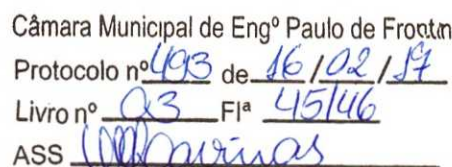 Câmara Municipal de Engº Paulo de Frontin
Protocolo nº 493 de 16/02/17
Livro nº 03 Flª 45/46
ASS